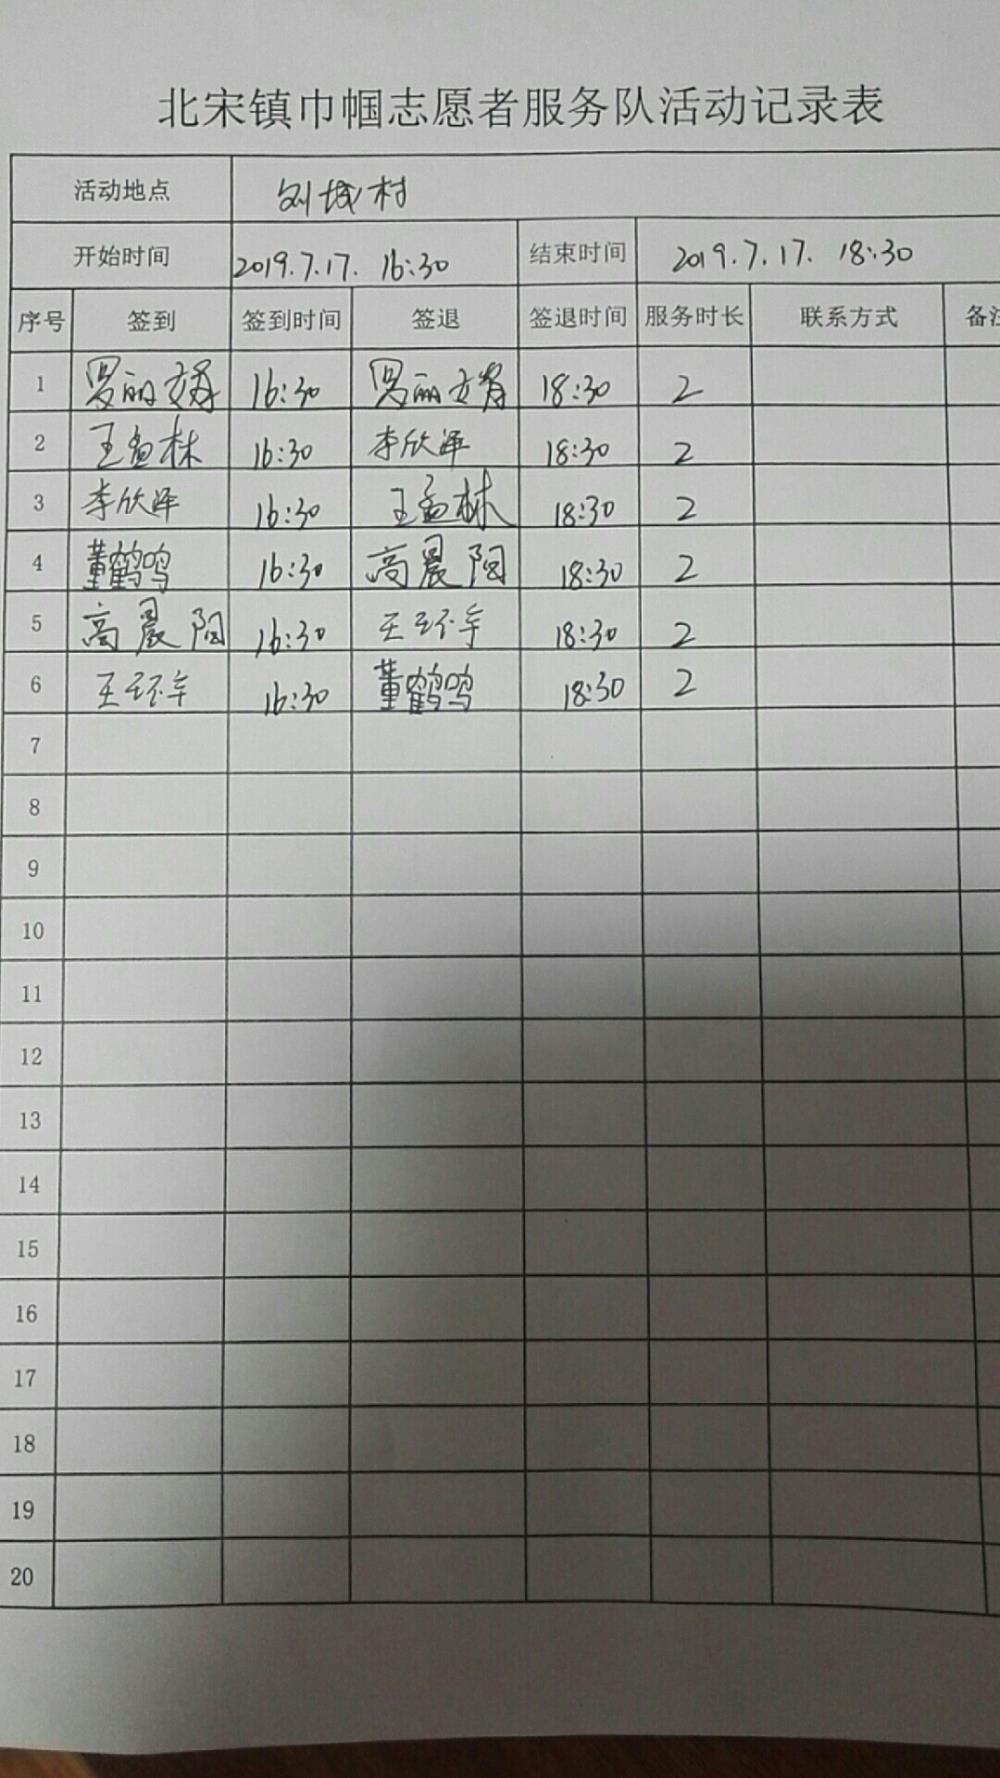 北宋镇巾帼志愿者服务队活动记录表
活动地点 刘城村
开始时间 2019.7.17. 16:30 结束时间 2019.7.17. 18:30
序号 签到 签到时间 签退 签退时间 服务时长 联系方式 备注
1 罗丽婧 16:30 罗丽婧 18:30 2
2 王孟林 16:30 李欣泽 18:30 2
3 李欣泽 16:30 王孟林 18:30 2
4 董鹤鸣 16:30 高晨阳 18:30 2
5 高晨阳 16:30 王环宇 18:30 2
6 王环宇 16:30 董鹤鸣 18:30 2
7
8
9
10
11
12
13
14
15
16
17
18
19
20